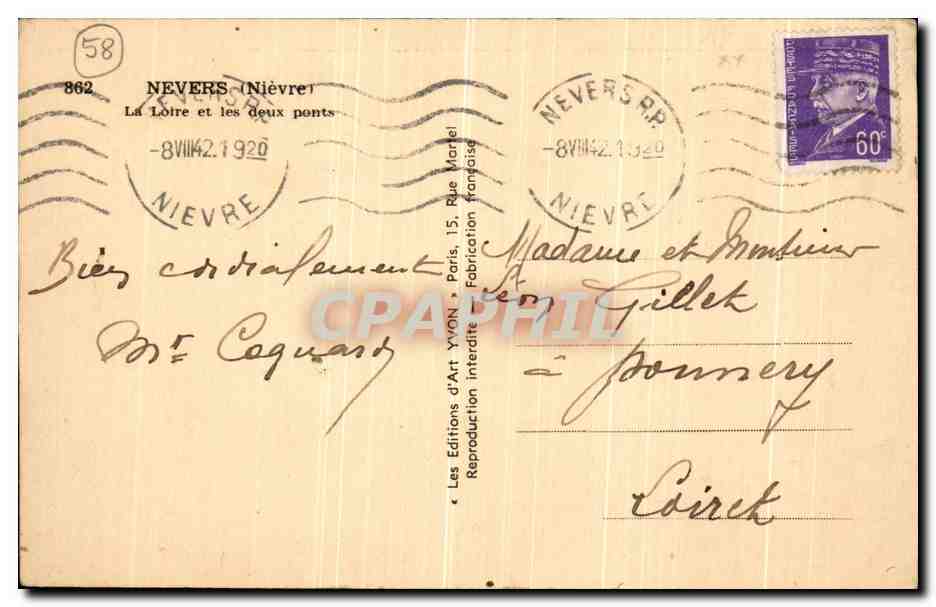 58
862 NEVERS (Nièvre)
La Loire et les deux ponts
NEVERS R.P.
-8 VIII 42.1920
NIEVRE
NEVERS R.P.
-8 VIII 42.1920
NIEVRE
60c
Bien cordialement
Mr Coquard
« Les Editions d'Art YVON » Paris, 15, Rue Martel
Reproduction interdite - Fabrication française
Madame et Monsieur
Léon Gillet
à
Loiret
CPAPHIL